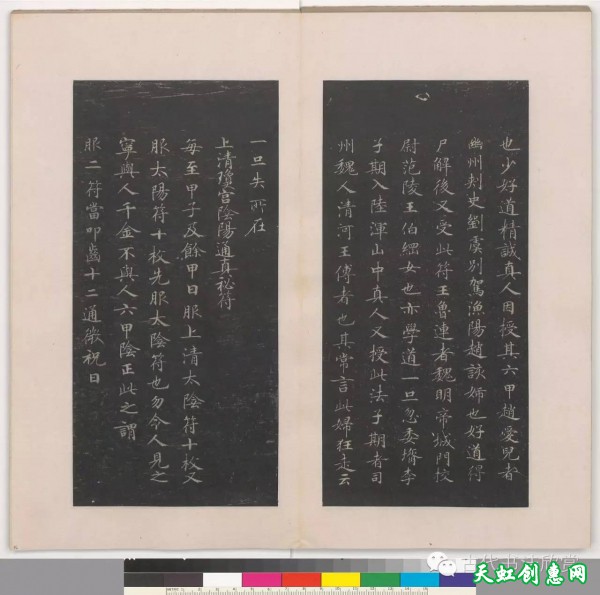 也少好道精誠真人因授其六甲趙愛兒者
幽州刾史劉虞別駕漁陽趙該婦也好道得
尸解後又受此符王魯連者魏明帝城門校
尉范陵王伯綱女也亦學道一旦忽委壻李
子期入陸渾山中真人又授此法子期者司
州魏人清河王傅者也其常言此婦狂走云
一旦失所在
上清瓊宮陰陽通真祕符
每至甲子及餘甲日服上清太陰符十枚又
服太陽符十枚先服太陰符也勿令人見之
寧與人千金不與人六甲陰正此之謂
服二符當叩齒十二通微祝曰
古代书法欣赏
天虹创惠网